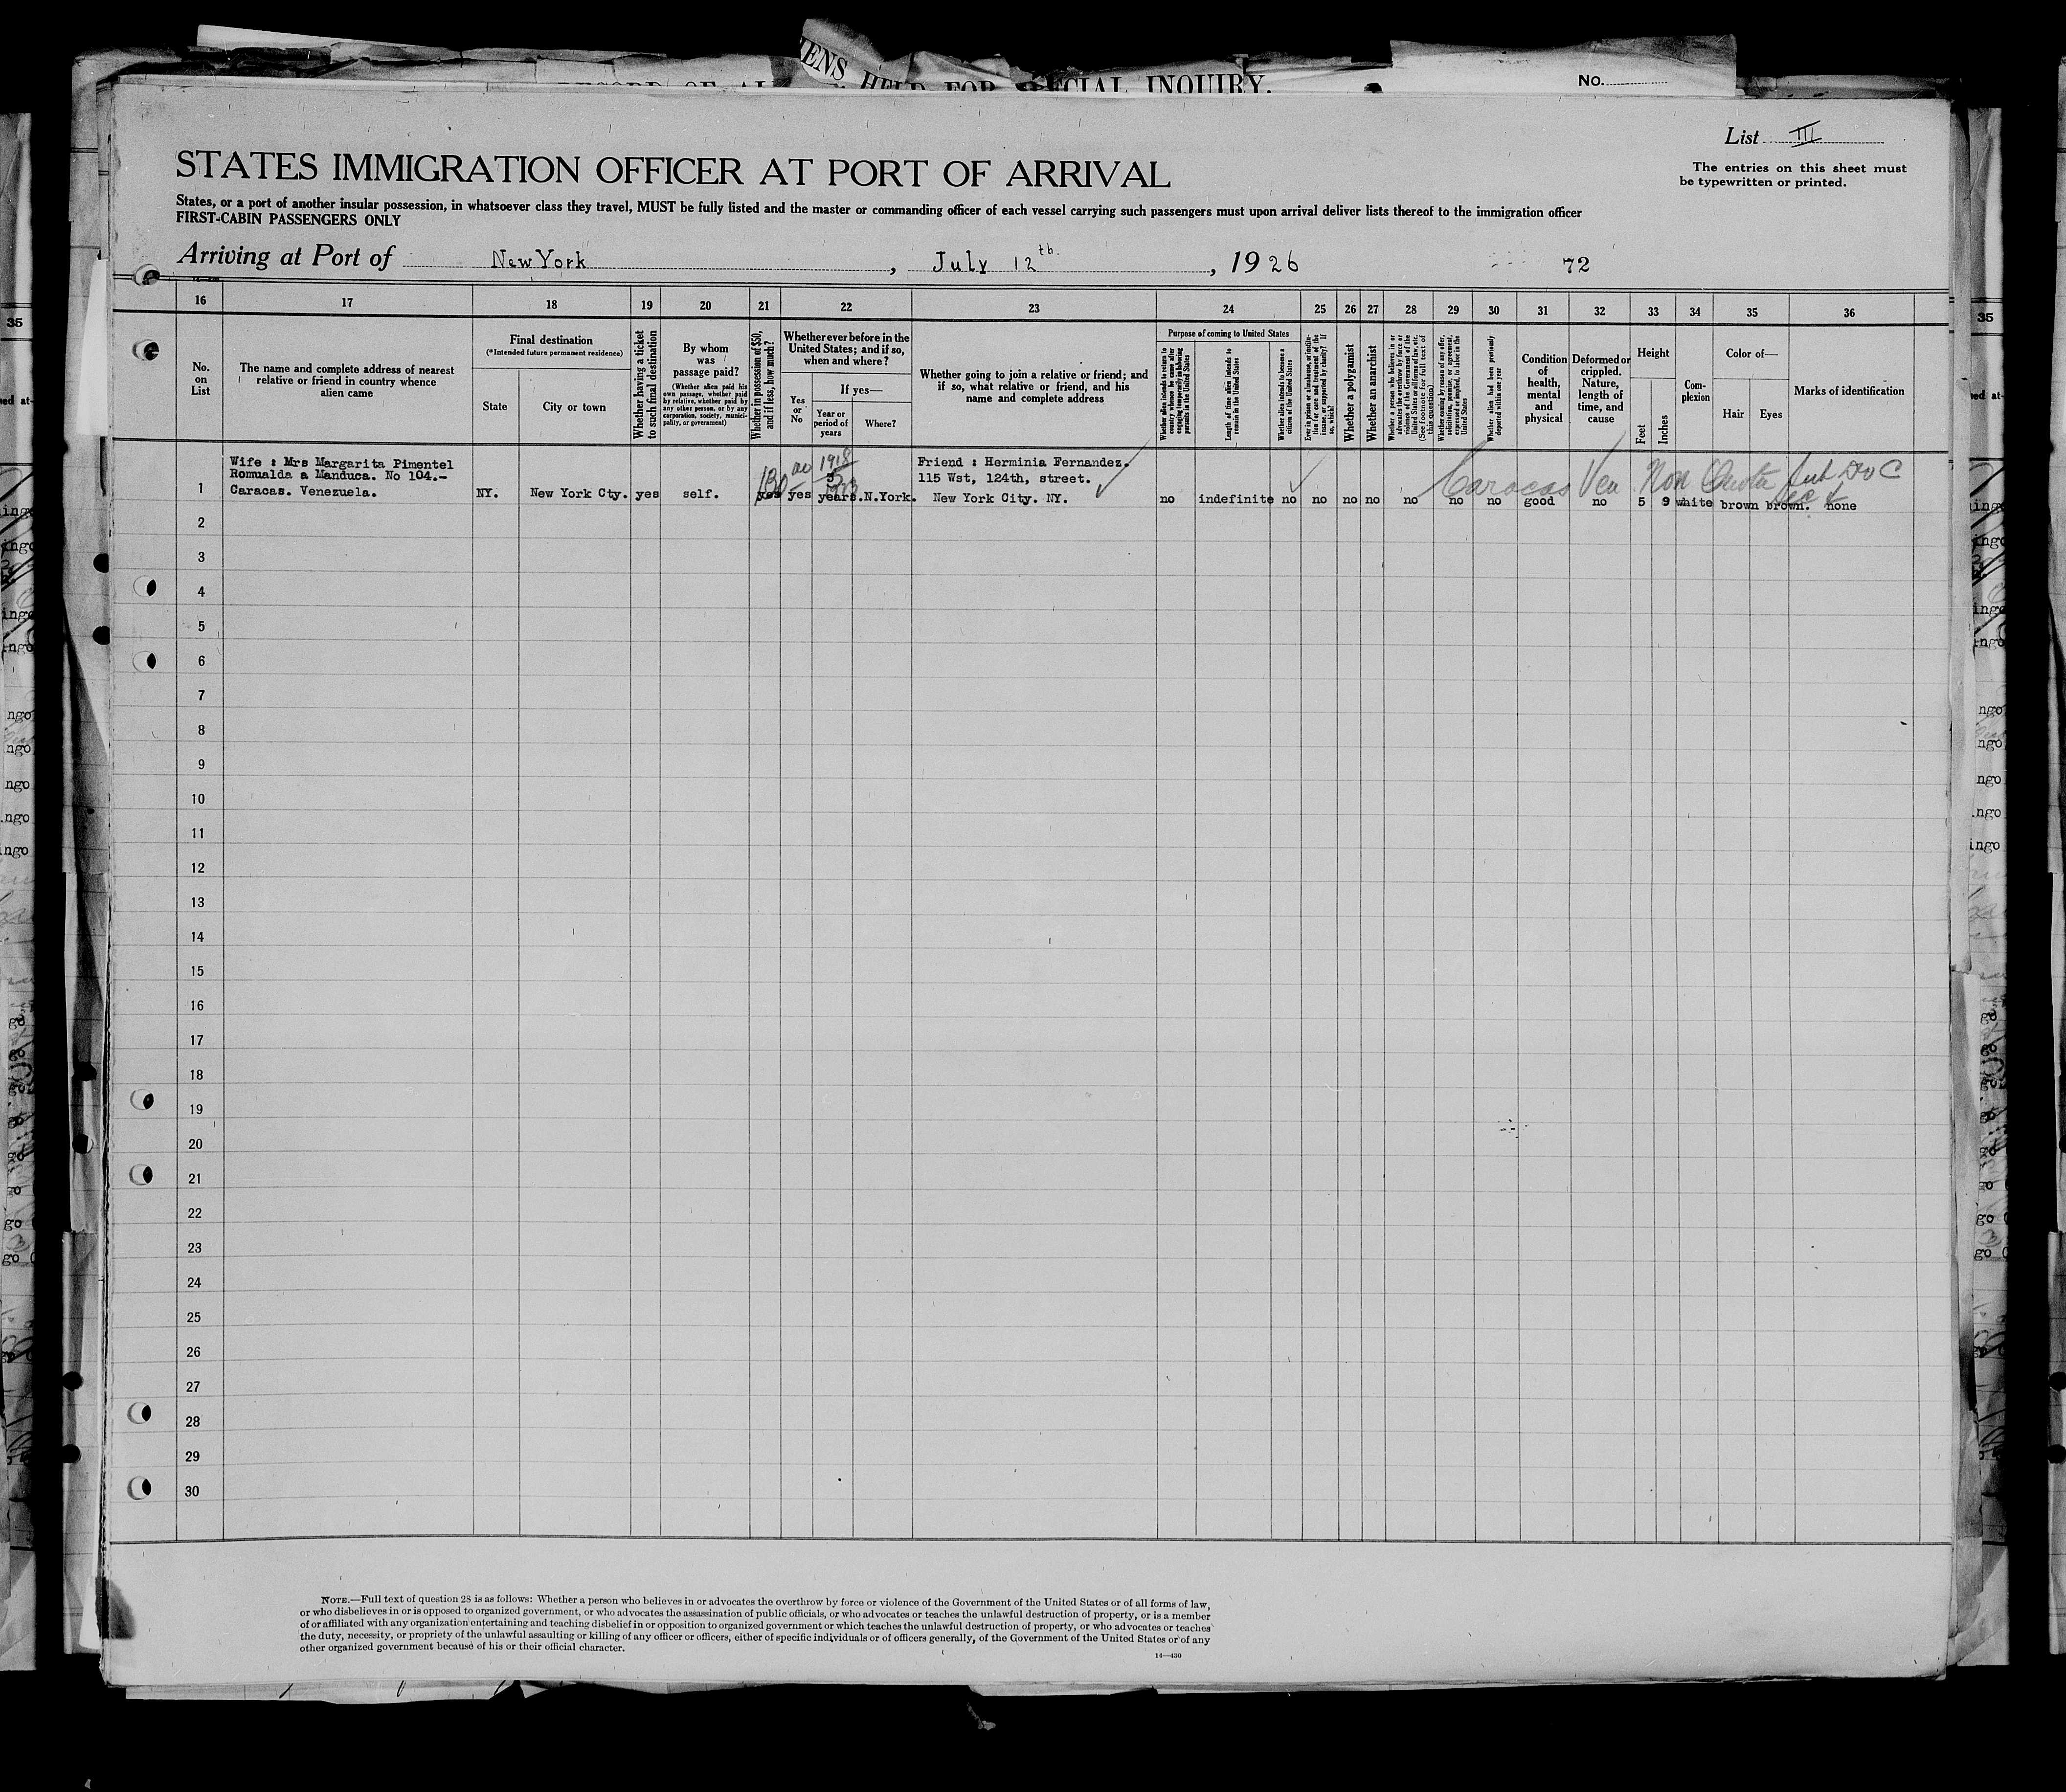 ENS HELD FOR SPECIAL INQUIRY.
No.
List III
The entries on this sheet must
be typewritten or printed.
STATES IMMIGRATION OFFICER AT PORT OF ARRIVAL
States, or a port of another insular possession, in whatsoever class they travel, MUST be fully listed and the master or commanding officer of each vessel carrying such passengers must upon arrival deliver lists thereof to the immigration officer
FIRST-CABIN PASSENGERS ONLY
Arriving at Port of New York, July 12th, 1926 72
16 17 18 19 20 21 22 23 24 25 26 27 28 29 30 31 32 33 34 35 36
No. on List
The name and complete address of nearest relative or friend in country whence alien came
Final destination
(*Intended future permanent residence)
State
City or town
Whether having a ticket to such final destination
By whom was passage paid?
(Whether alien paid his own passage, whether paid by relative, whether paid by any other person, or by any corporation, society, municipality, or government)
Whether in possession of $50, and if less, how much?
Whether ever before in the United States; and if so, when and where?
Yes or No
If yes—
Year or period of years
Where?
Whether going to join a relative or friend; and if so, what relative or friend, and his name and complete address
Purpose of coming to United States
Whether alien intends to return to country whence he came after engaging temporarily in laboring pursuits in the United States
Length of time alien intends to remain in the United States
Whether alien intends to become a citizen of the United States
Ever in prison or almshouse, or institution for care and treatment of the insane, or supported by charity? If so, which?
Whether a polygamist
Whether an anarchist
Whether a person who believes in or advocates the overthrow by force or violence of the Government of the United States or all forms of law, etc. (See footnote for full text of this question)
Whether coming by reason of any offer, solicitation, promise, or agreement, expressed or implied, to labor in the United States
Whether alien had been previously deported within one year
Condition of health, mental and physical
Deformed or crippled. Nature, length of time, and cause
Height
Feet
Inches
Complexion
Color of—
Hair
Eyes
Marks of identification
Wife : Mrs Margarita Pimentel
Romualda a Manduca. No 104.-
Caracas. Venezuela.
1 NY. New York Cty. yes self. yes yes 5 years. N.York.
130 no 1918
Friend : Herminia Fernandez.
115 Wst, 124th, street.
New York City. NY.
no indefinite no no no no no no no good no 5 9 white brown brown. none
Caracas Ven Non Quota
2
3
4
5
6
7
8
9
10
11
12
13
14
15
16
17
18
19
20
21
22
23
24
25
26
27
28
29
30
NOTE.—Full text of question 28 is as follows: Whether a person who believes in or advocates the overthrow by force or violence of the Government of the United States or of all forms of law,
or who disbelieves in or is opposed to organized government, or who advocates the assassination of public officials, or who advocates or teaches the unlawful destruction of property, or is a member
of or affiliated with any organization entertaining and teaching disbelief in or opposition to organized government or which teaches the unlawful destruction of property, or who advocates or teaches
the duty, necessity, or propriety of the unlawful assaulting or killing of any officer or officers, either of specific individuals or of officers generally, of the Government of the United States or of any
other organized government because of his or their official character.
14—430